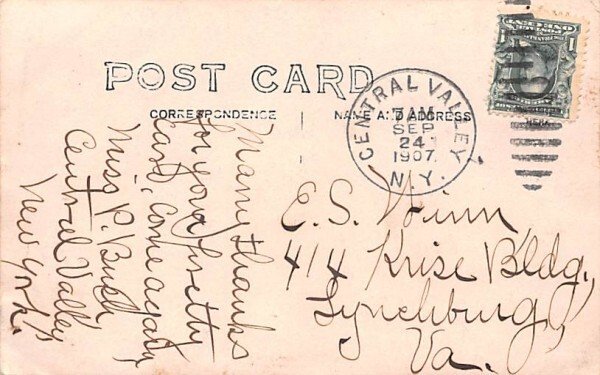 POST CARD
CORRESPONDENCE
NAME AND ADDRESS
CENTRAL VALLEY
7 AM
SEP
24
1907
N.Y.
1 1
Many thanks
for your pretty
card, come again,
Miss P. Bush
Central Valley
New York.
E. S. Winn
414 Krise Bldg,
Lynchburg,
Va.